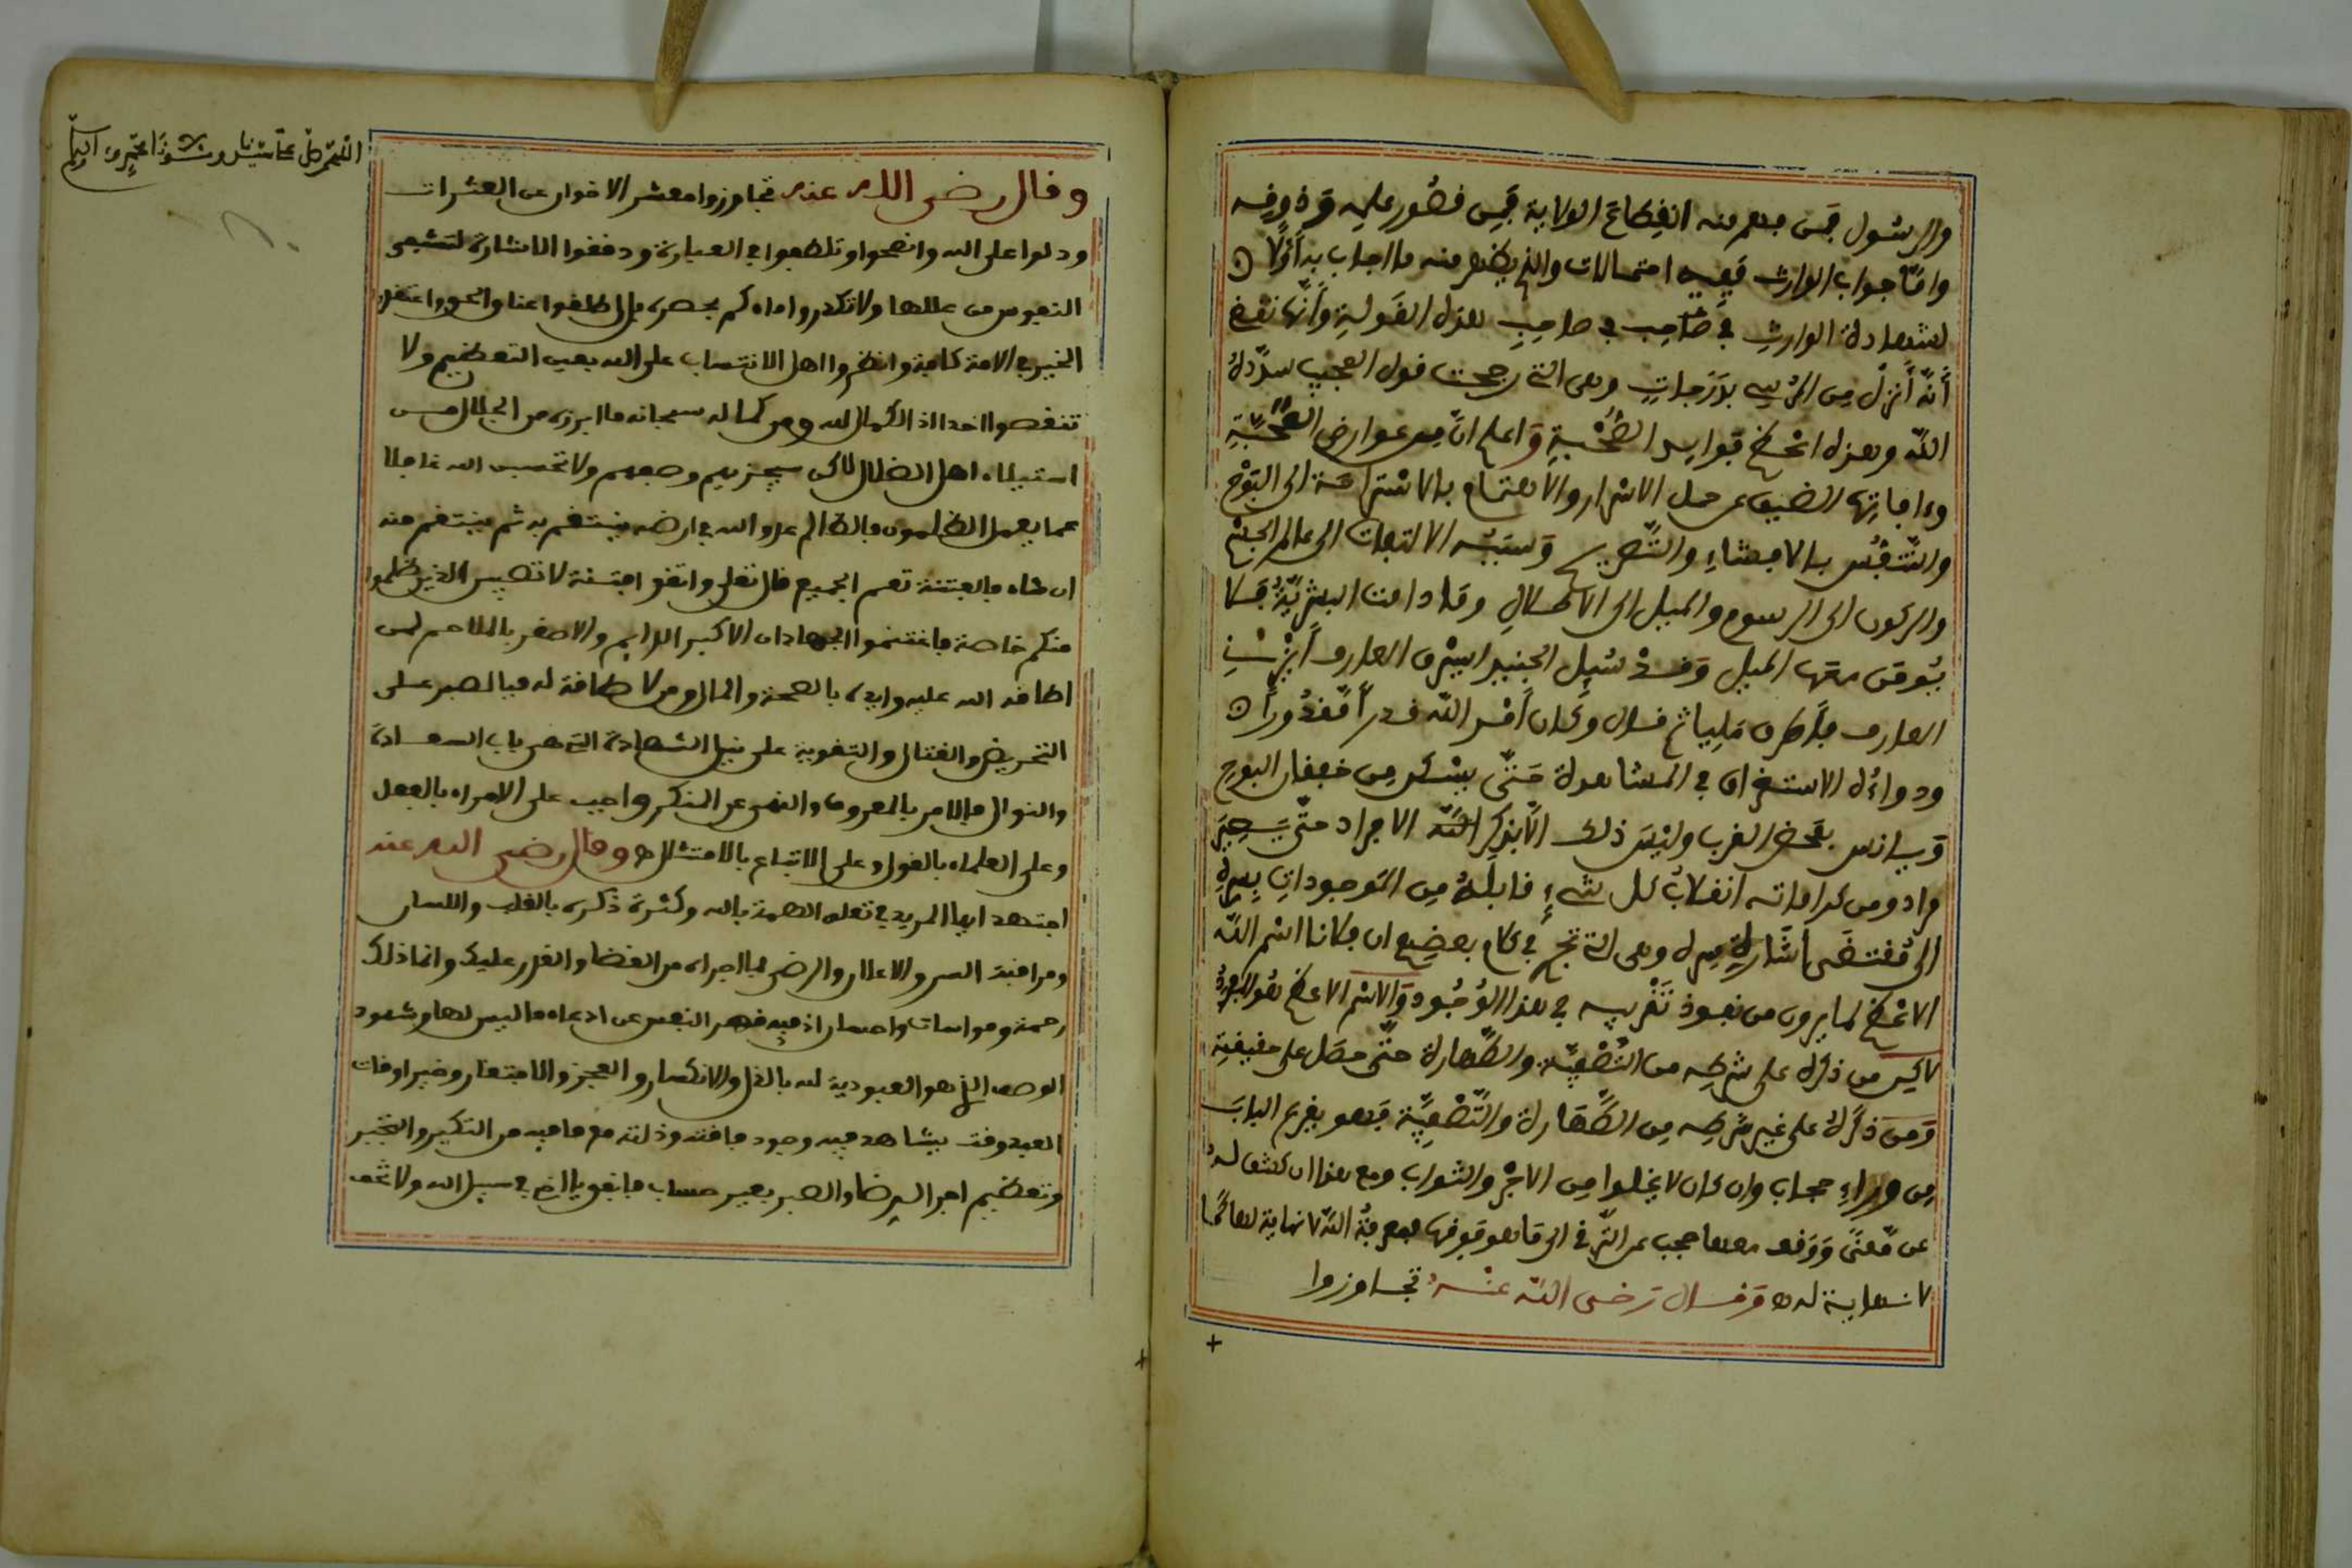 والرسول فمن يفهم منه انقطاع الولاية فمن قصور علمه وذوقه
واما جواب الوارث ففيه احتمالات والذي يظهر منه ما اجاب به أولا
لشهادة الوارث في صاحب هذه القولة وأنها نقص
أنه أنزل من الكرسي بدرجات وهي التي رجحت قول المجيب سدده
الله وهذه اعظم فوايد الصحبة واعلم ان من عوارض المحبة
وءافاتها الضيق عن حمل الاسرار والاهتمام بالاستراحة الى البوح
والتنفس بالافشاء والتصريح وسببه الالتفات الى عالم الجسم
والركون الى الرسوم والميل الى الاطلال وما دامت البشرية فلا
يومن معها الميل وقد سئل الجنيد ايسرق العارف ايزني
العارف فاطرق مليا ثم قال وكان أمر الله قدرا مقدورا
ودواؤه الاستغراق في المشاهدة حتى يسكر من خفقان البوح
ويانس بمحض القرب وليس ذلك الا بذكر الله الافراد حتى يصير
مراد ومن كراماته انقلاب كل شيء قابله من الموجودات بسره
الى مقتضى اشارة سره وهي التي تجري في كلام بعضهم ان فلانا اسم الله
الاعظم لما يرون من نفوذ تصريفه في هذا الوجود والاسم الاعظم هو المفرد
لاكن من ذكره على شرطه من التصفية والطهارة حتى حصل على حقيقته
ومن ذكره على غير شرطه من الطهارة والتصفية فهو يقرع الباب
من وراء حجاب وان كان لا يخلوا من الاجر والثواب ومع هذا ان كشف له
عن معنى ووقف معها حجب عن الترقي الى ما هو فوقها فمعرفة الله لا نهاية لها كما
لا نهاية له وقال رضي الله عنه تجاوزوا
اللهم صل على سيدنا
وقال رضى الله عنه تجاوزوا معشر الاخوان عن العثرات
ودلوا على الله وانصحوا وتلطفوا في العبارة ودققوا الاشارة لتشفى
النفوس من عللها ولا تكدروا ماءكم بحصره بل اطلقوا عنا والحوا اعتقدوا
الخير في الامة كافة وانظروا اهل الانتساب على الله بعين التعظيم ولا
تنقصوا احدا اذ الكمال لله ومن كماله سبحانه ما ابرزه من الجلال من
استيلاء اهل الضلال لاكن سيجزيهم وصفهم ولا تحسبن الله غافلا
عما يعمل الظلمون فالظالم عدو الله في ارضه ينتقم به ثم ينتقم منه
ان شاء فالفتنة تعم الجميع قال تعلى واتقوا فتنة لا تصيبن الذين ظلموا
منكم خاصة فاغتنموا الجهادان الاكبر الدايم والاصغر بالملاحم لمن
اطاقه الله عليه وايده بالصحة والمال ومن لا طاقة له فبالصبر على
التحريض والقتال والتقوية على نيل الشهادة التي هي باب السعادة
والنوال فالامر بالمعروف والنهى عن المنكر واجب على الامراء بالفعل
وعلى العلماء بالقول وعلى الاتباع بالامتثال وقال رضى الله عنه
اجتهد ايها المريد في تعلق الهمة بالله وكثرة ذكره بالقلب واللسان
ومراقبته السر والاعلان والرضى لما اجراه من القضا والقدر عليك وانما ذلك
رحمة ومواسات واحسان اذ فيه قهر النفس عن ادعاء ما ليس لها وشهود
الوصف الذي هو العبودية لله بالذل والانكسار والعجز والافتقار وخير اوقات
العبد وقت يشاهد فيه وجود فاقته وذلته مع ما فيه من التكبر والتجبر
وتعظيم اجر الرضا والصبر بغير حساب فابقوا في سبيل الله ولا تخف